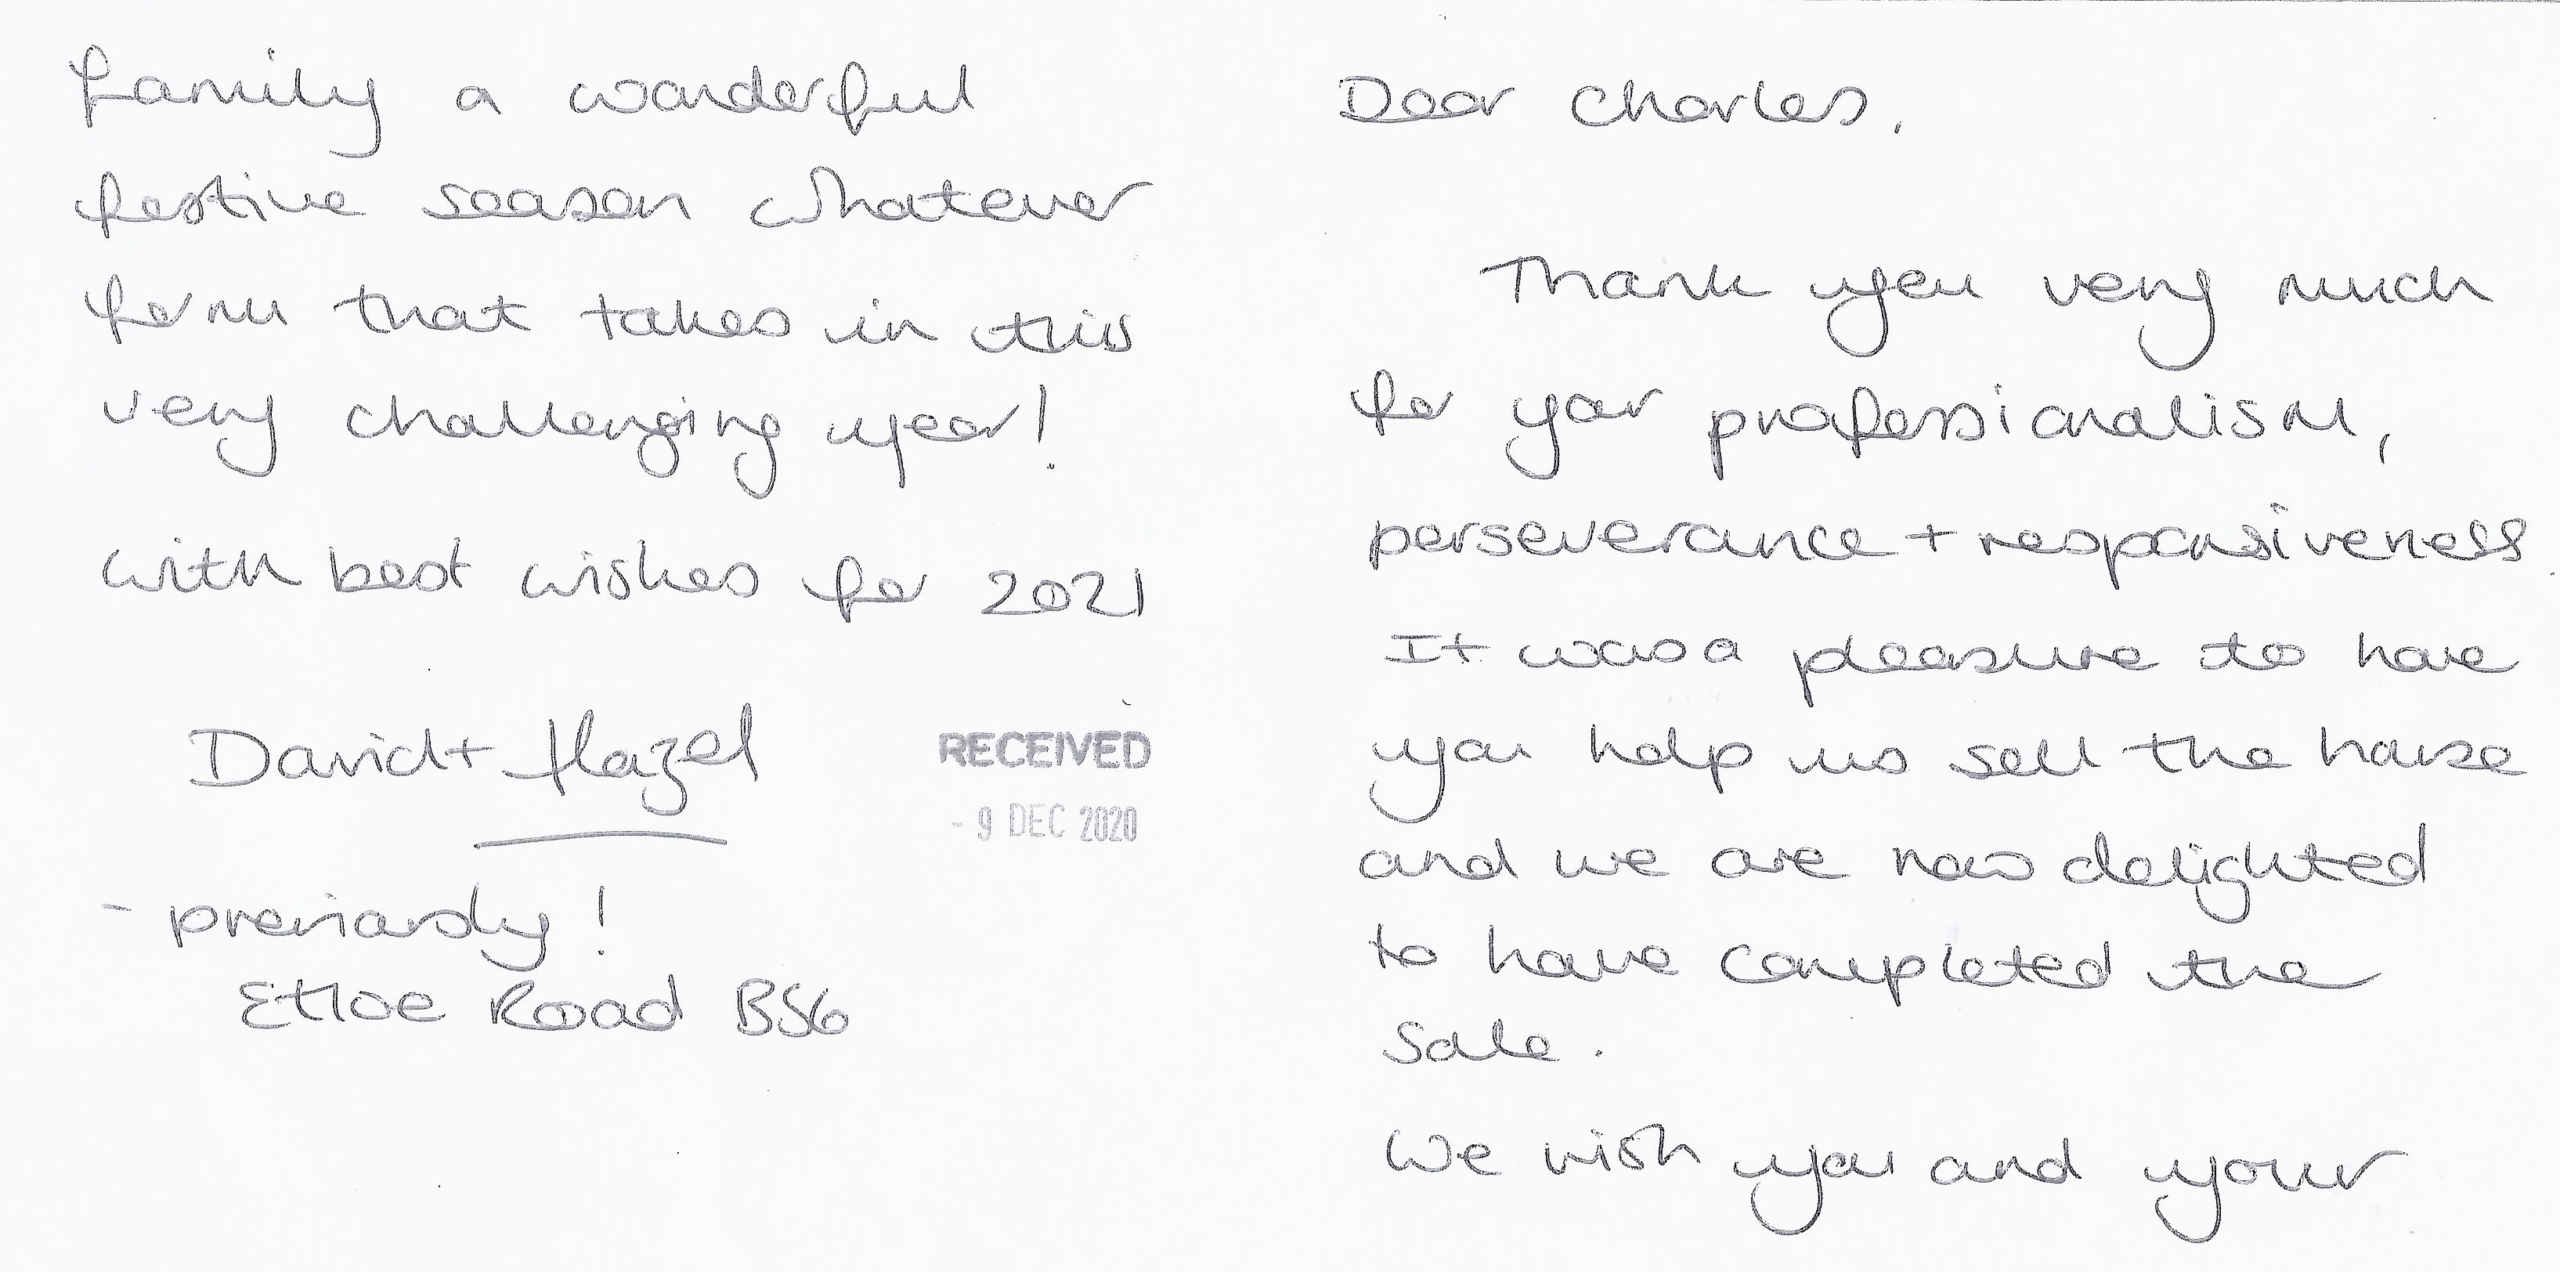 Dear Charles,
Thank you very much
for your professionalism,
perseverance + responsiveness.
It was a pleasure to have
you help us sell the house
and we are now delighted
to have completed the
sale.
We wish you and your
family a wonderful
festive season whatever
form that takes in this
very challenging year!
With best wishes for 2021
David + Hazel
RECEIVED
- 9 DEC 2020
- previously!
Etloe Road BS6